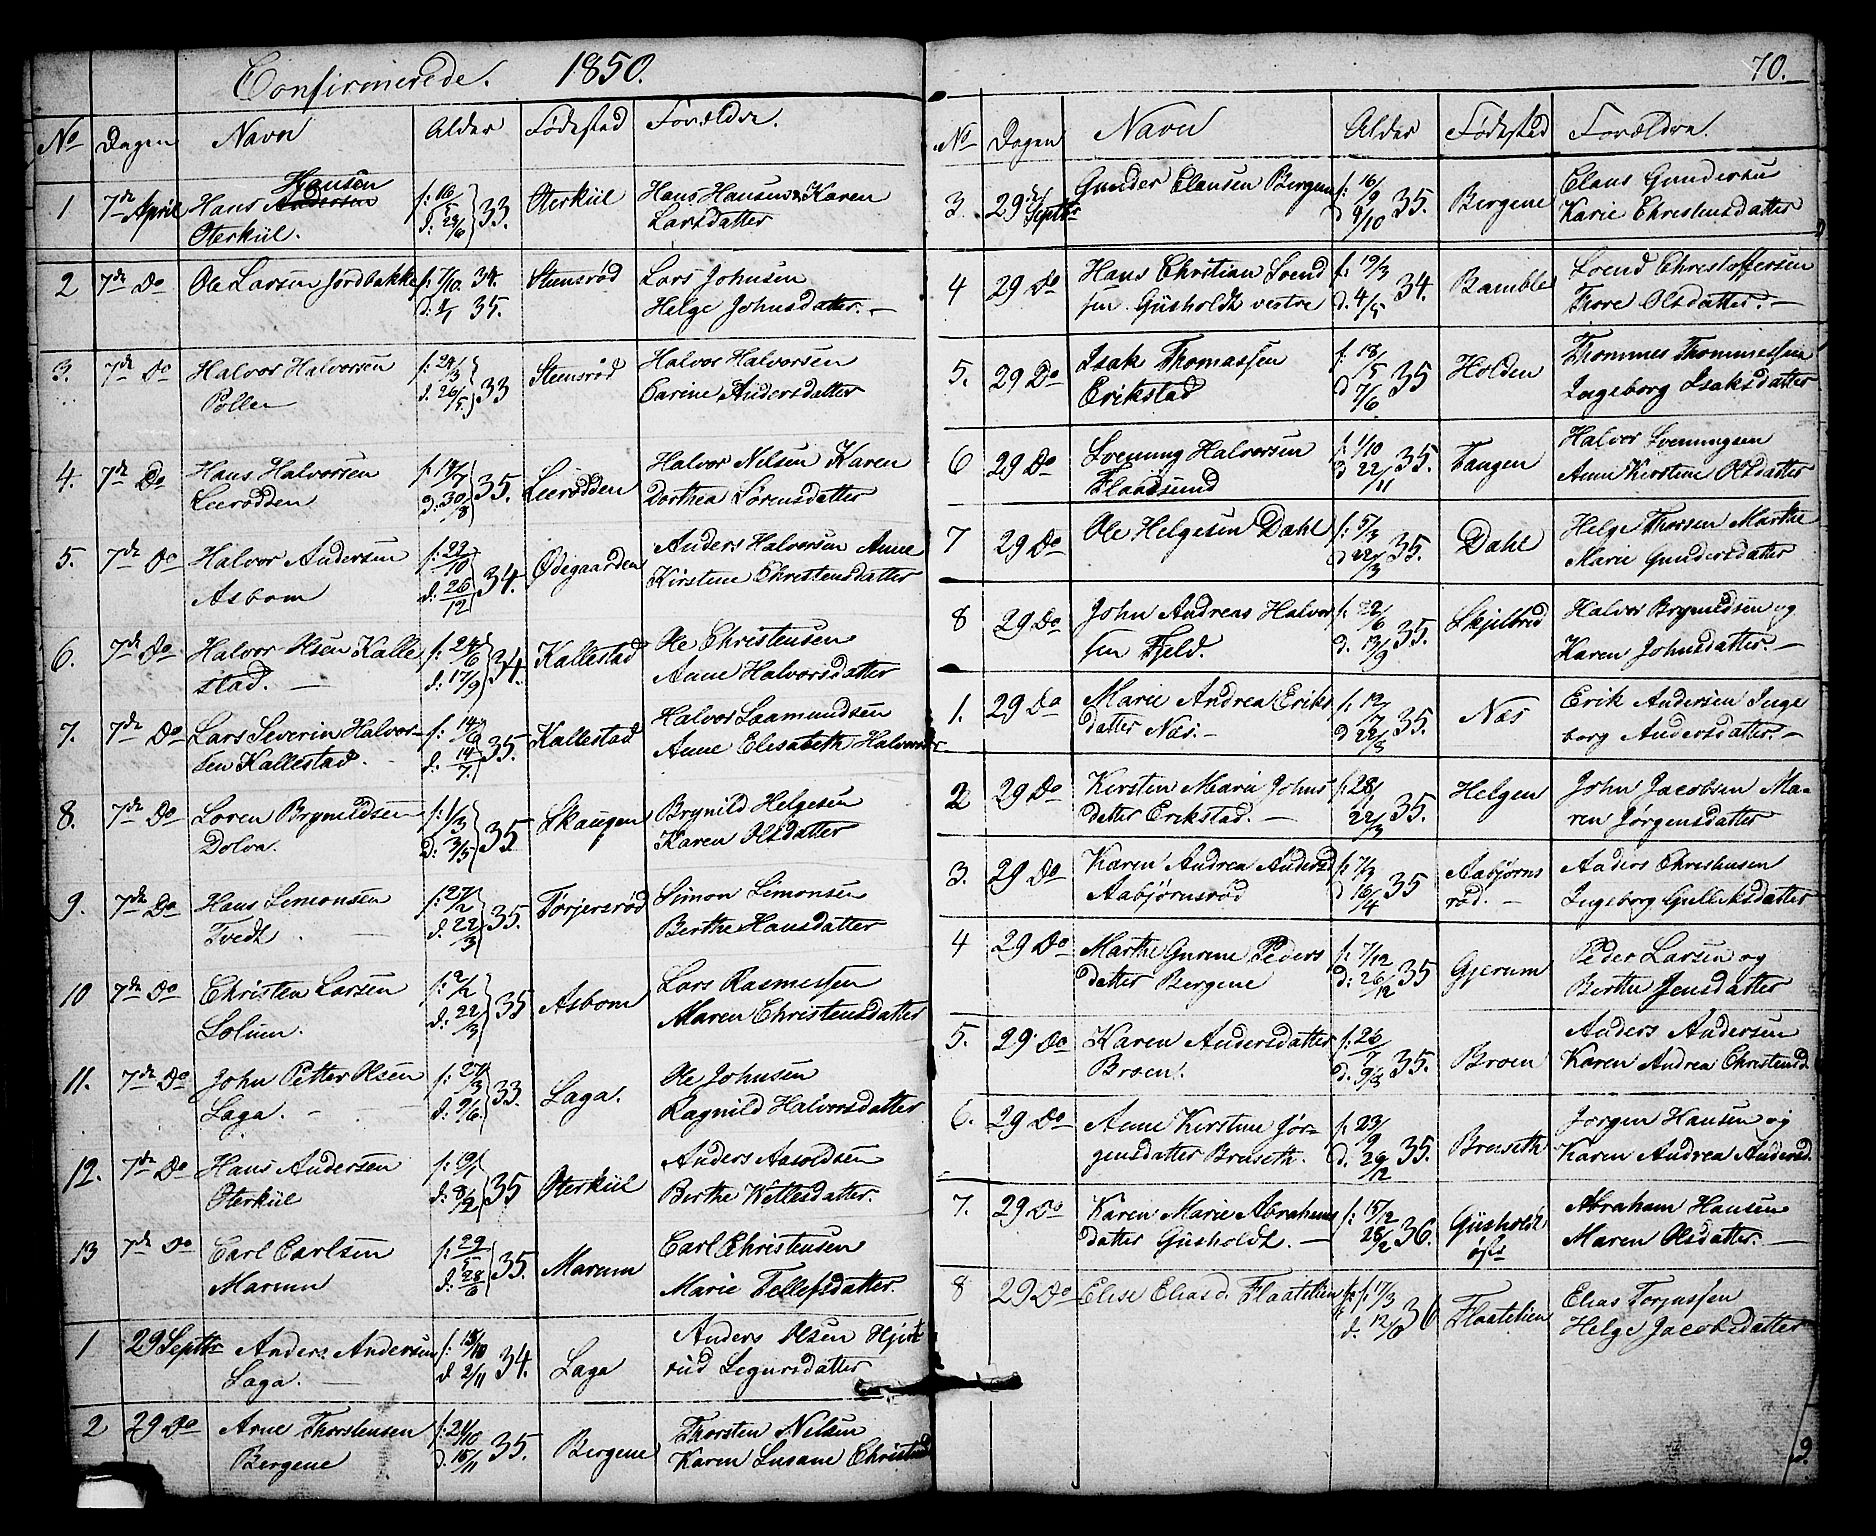 Confirmerede. 1850.
No Dagen Navn Alder Fødestad Forældre.
1 7de April Hans Hansen Andersen f: 16/5 33 Oterkiil Hans Hansen & Karen
Oterkiil. d: 23/6 Larsdatter
2 7de Do Ole Larsen Jordbakke f: 7/10. 34. Stensrød Lars Johnsen
d. 1/1 35. Helge Johnsdatter. –
3. 7de Do Halvor Halvorsen f: 24/3 33 Stensrød Halvor Halvorsen
Poller d. 26/5. Carine Andersdatter
4. 7de Do Hans Halvorsen f. 19/7 35. Leerødden Halvor Nilsen Karen
Leerødden d: 30/8 Dorthea Sørensdatter
5. 7de Do Halvor Andersen f: 22/10 34. Ødegaarden Anders Halvorsen Anne
Asbom d: 26/12 Kirstine Christensdatter
6. 7de Do Halvor Olsen Kalle f: 24/6 34. Kallestad Ole Christensen
stad. – d: 17/9 Anne Halvorsdatter
7. 7de Do Lars Severin Halvor– f: 14/6 35. Kallestad Halvor Saamundsen
sen Kallestad. d: 14/7. Anne Elisabeth Halvorsdr
8. 7de Do Soren Brynildsen f: 1/3 35 Skaugen Brynild Helgesen
Dolva. d: 3/5 Karen Olsdatter
9. 7de Do Hans Simonsen f: 27/2 35. Torjersrød Simon Simonsen
Tvedt. – d. 22/3 Berthe Hansdatter
10 7de Do Christen Larsen f: 2/2 35 Asbom Lars Rasmessen
Solum. d: 22/3 Maren Christensdatter
11. 7de Do John Petter Olsen f: 27/3 33. Laga. Ole Johnsen
Laga. – d: 9/6. Ragnild Halvorsdatter
12. 7de Do Hans Andersen f: 19/1 35 Oterkiil Anders Asoldsen
Oterkiil d: 8/2 Berthe Kitlesdatter.
13 7de Do Carl Carlsen f: 29/5 35. Marum Carl Christensen
Marum d: 28/6 Marie Tellefsdatter.
1 29 Septbr Anders Andersen f: 18/10 34. Laga Anders Olsen Hjert
Laga. – d 2/11 rud Segursdatter
2 29 Do Arne Thorstensen f: 21/10 35. Bergene Thorsten Nilsen
Bergene d. 15/11 Karen Susane Christensd
70.
No Dagen Navn Alder Fødested Forældre.
3. 29de Septbr Gunder Clausen Bergene f: 16/9 35. Bergene Claus Gundersen
d 9/10 Karie Christensdatter
4 29 Do Hans Christian Svend f: 19/3 34. Bamble Svend Christoffersen
sen. Gusholdt vestre d. 4/5 Thore Olsdatter. –
5. 29 Do Isak Thomassen f: 18/5 35 Holden Thommes Thommessen
Erikstad d 7/6 Ingeborg Isaksdatter
6 29 Do Svenning Halvorsen f: 1/10 35. Tangen Halvor Svenningsen
Flaadsund d 22/11 Anne Kirstine Olsdatter
7 29 Do Ole Helgesen Dahl f: 5/3 35. Dahl Helge Thorsen Marthe
d 22/3 Marie Gundersdatter
8 29 Do John Andreas Halvor f. 23/6 35. Skjelbred Halvor Brynildsen og
sen Fjeld. d. 13/9 Karen Johnsdatter. –
1. 29 Do Marie Andrea Eriks f. 12/7 35. Næs Erik Andersen Inge
datter Næs. – d 22/3 borg Andersdatter. –
2 29 Do Kersten Marie Johns f. 28/1 35. Helgen John Jacobsen Ma–
datter Erikstad. – 22/3 ren Jørgensdatter
3. 29 Do Karen Andrea Andersd f. 7/3 35 Aabjørns Anders Christensen
Aabjörnsrød d 16/4 rød. – Ingeborg Gulleksdatter
4 29 Do Marthe Gurine Peders f. 7/12 35 Gjerum Peder Larsen og
datter Bergene d: 26/12 Berthe Jensdatter
5. 29. Do Karen Andersdatter f: 26/7 35. Broen Anders Andersen
Broen. d. 9/3 Karen Andrea Christensd.
6. 29 Do Anne Kirstine Jør– f. 23/9 35. Breseth Jørgen Hansen og
gensdatter Breseth. d. 26/12 Karen Andrea Andersd.
7. 29 Do Karen Marie Abrahams f: 15/2 36. Gusholdt Abraham Hansen
datter Gusholdt. – 28/2 øst Maren Olsdatter. –
8 29 Do Elise Eliasd. Flaatelien f. 17/3 36 Flaatelien Elias Torjussen
d. 12/8 Helge Jacobsdatter
9.